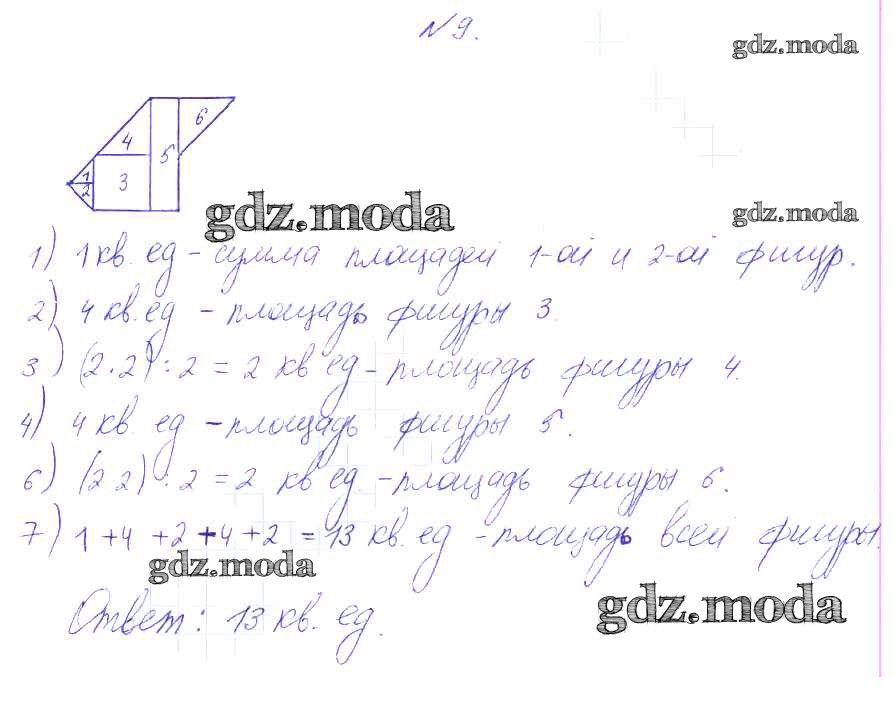 №9.
gdz.moda
6
4
5
1
3
2
gdz.moda
gdz.moda
1) 1 кв. ед - сумма площадей 1-ой и 2-ой фигур.
2) 4 кв. ед - площадь фигуры 3.
3) (2·2) : 2 = 2 кв ед - площадь фигуры 4.
4) 4 кв. ед - площадь фигуры 5.
6) (2 2) : 2 = 2 кв ед. - площадь фигуры 6.
7) 1 + 4 + 2 + 4 + 2 = 13 кв. ед - площадь всей фигуры.
gdz.moda
Ответ: 13 кв. ед.
gdz.moda